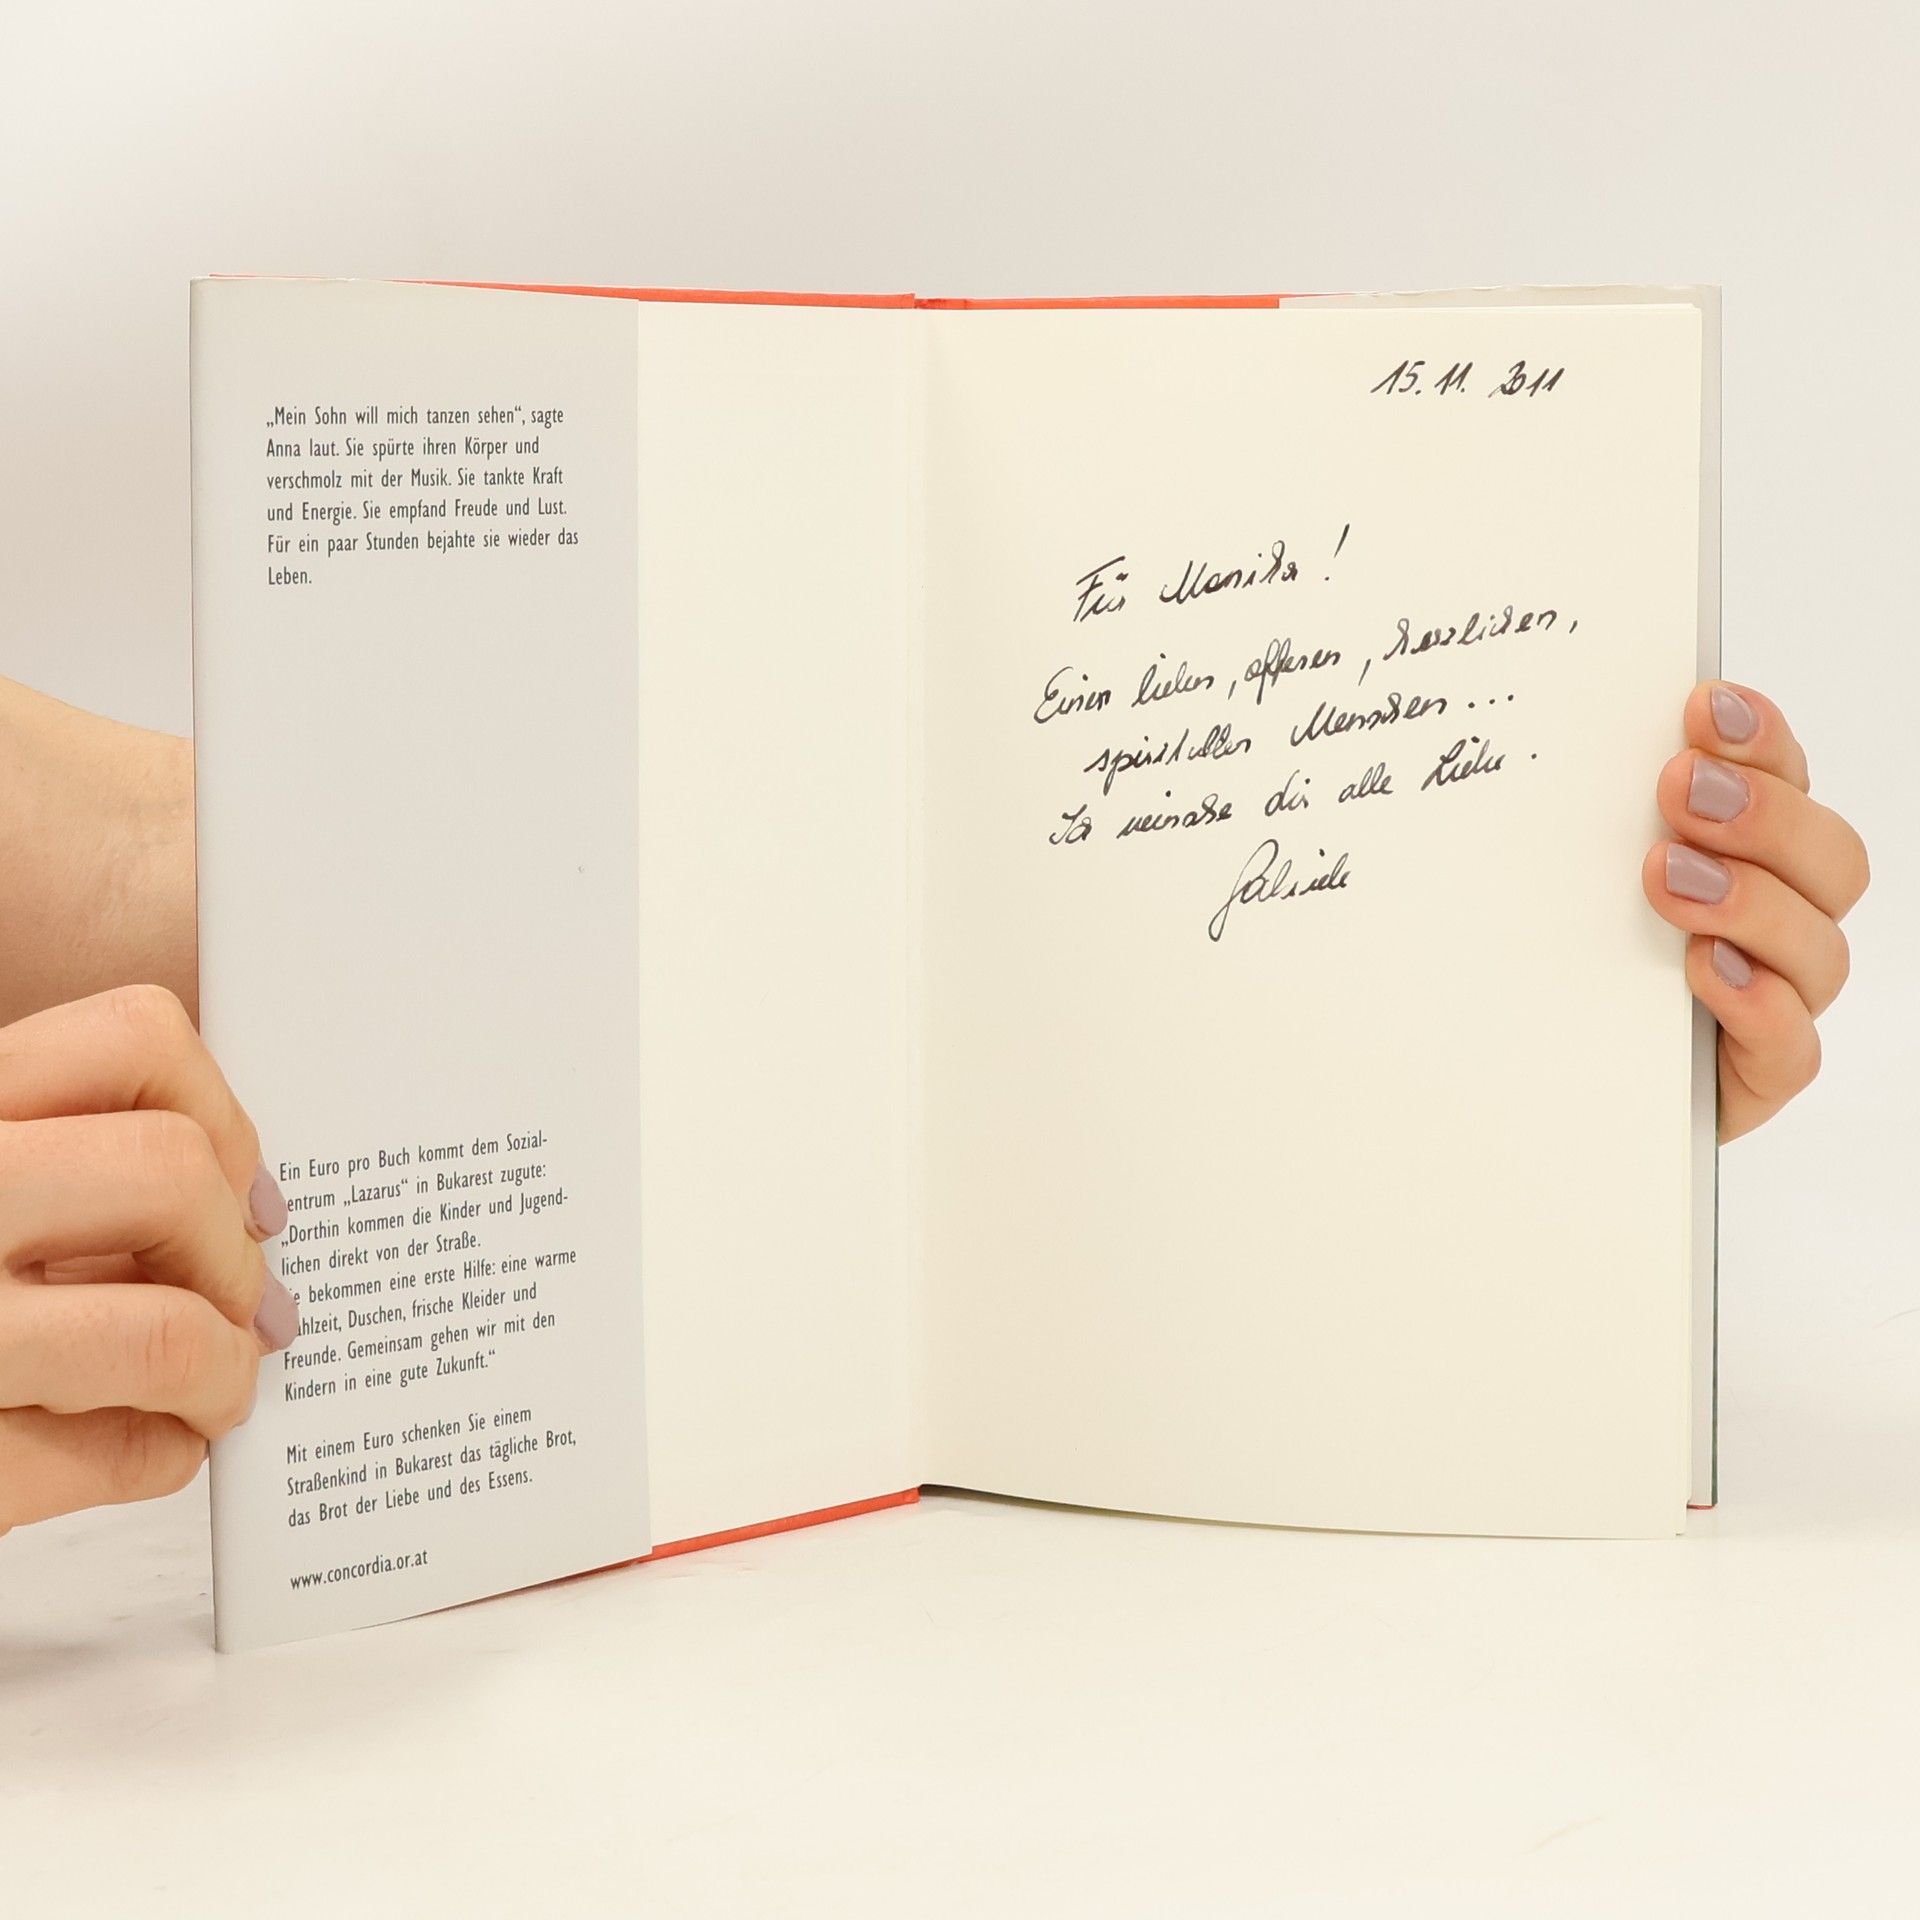 „Mein Sohn will mich tanzen sehen“, sagte
Anna laut. Sie spürte ihren Körper und
verschmolz mit der Musik. Sie tankte Kraft
und Energie. Sie empfand Freude und Lust.
Für ein paar Stunden bejahte sie wieder das
Leben.
Ein Euro pro Buch kommt dem Sozial-
entrum „Lazarus“ in Bukarest zugute:
„Dorthin kommen die Kinder und Jugend-
lichen direkt von der Straße.
e bekommen eine erste Hilfe: eine warme
ahlzeit, Duschen, frische Kleider und
Freunde. Gemeinsam gehen wir mit den
Kindern in eine gute Zukunft.“
Mit einem Euro schenken Sie einem
Straßenkind in Bukarest das tägliche Brot,
das Brot der Liebe und des Essens.
www.concordia.or.at
15.11.2011
Für Monika!
Einen lieben, offenen, herzlichen,
spirituellen Menschen...
Ich wünsche dir alle Liebe.
Gabriele